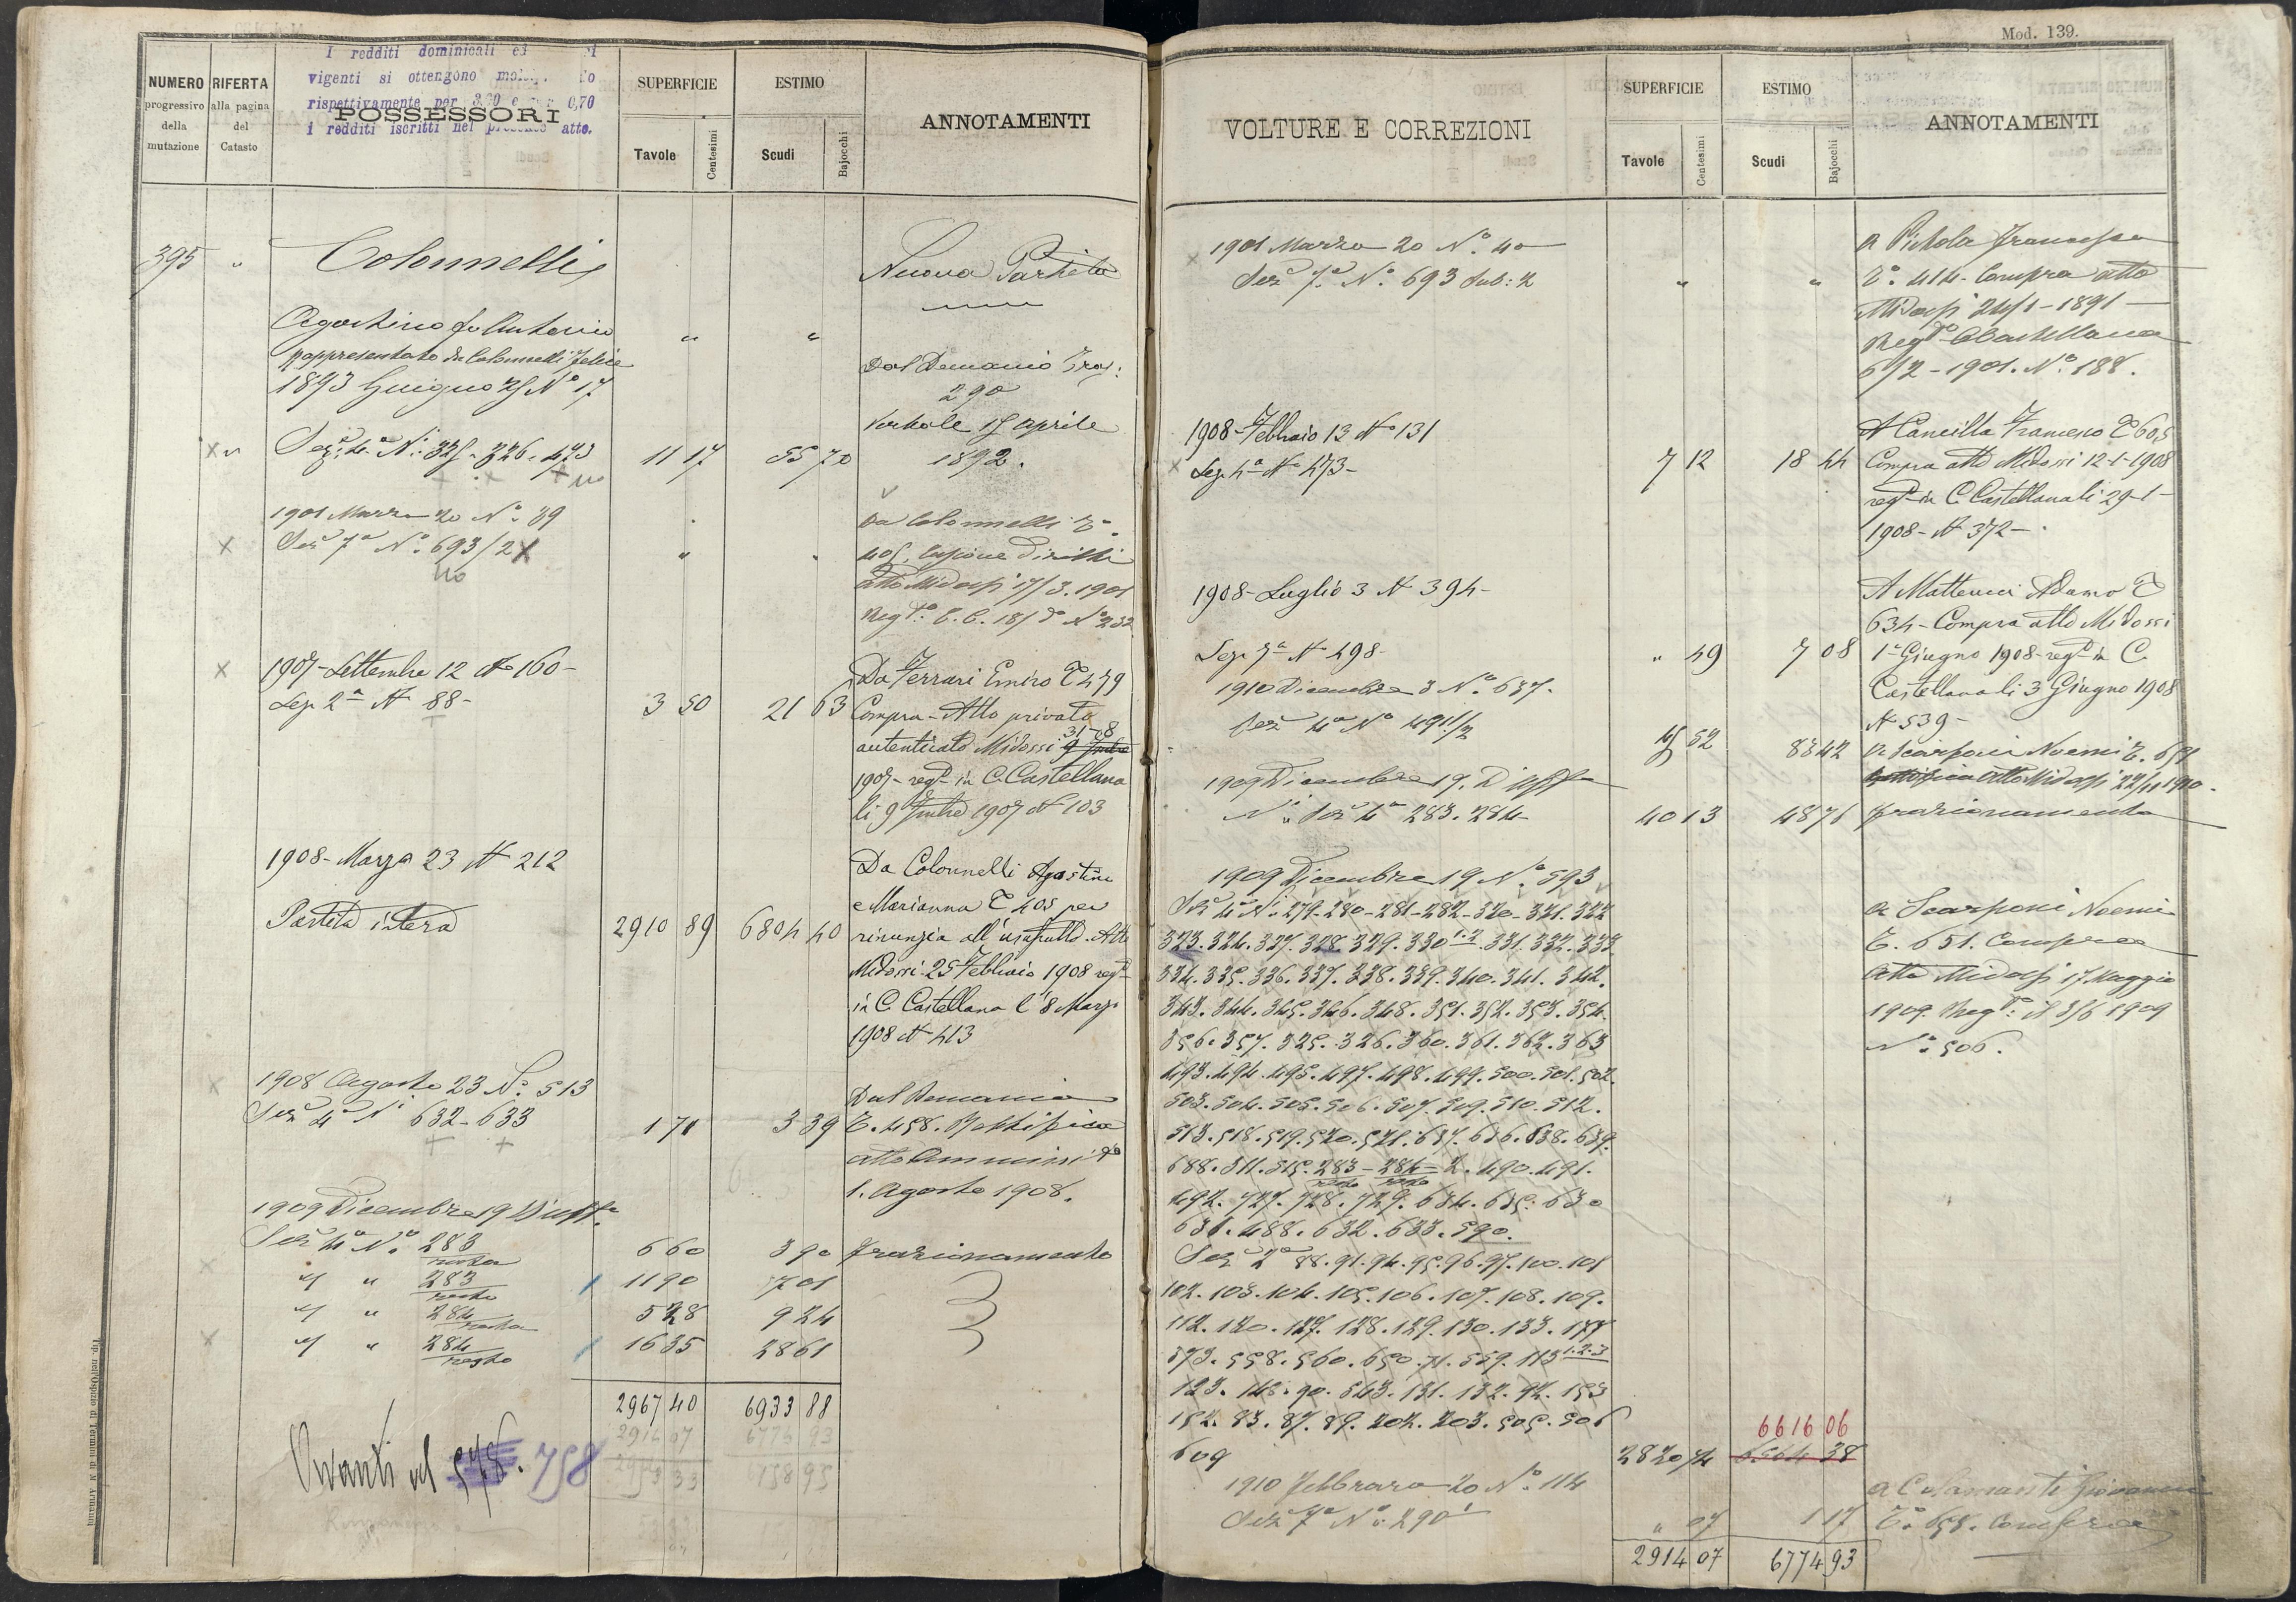 Mod. 139.
NUMERO
progressivo
della
mutazione
RIFERTA
alla pagina
del
Catasto
I redditi dominicali ed
vigenti si ottengono
rispettivamente per 0,70
i redditi iscritti nel atto.
POSSESSORI
SUPERFICIE
Tavole
Centesimi
ESTIMO
Scudi
Bajocchi
ANNOTAMENTI
395 " Colonnelli
Nuova Partita
Agostino fu Antonio " "
rappresentato da Colonnelli Felice
1893 Giugno 25 N° 17
Dal Demanio Tras:
290
verbale 15 aprile
1892.
Sez. 4a Ni 325. 326. 473 11 17 55 70
no
1901 Marzo 20 N° 39
Sez 7a N° 693/2 " "
no
Da Colonnelli T°
405. Cessione diritti
atto Midossi 17/3. 1901
Regto C. C. 18/ do N° 232
1907 - Settembre 12 N° 160 -
Sez 2a N° 88 - 3 50 21 63
Da Ferrari Emiro T 479
Compra - Atto privato
autenticato Midossi 31-8
1907 - regto in C. Castellana
li 9 1907 N° 103
1908 - Marzo 23 N° 212
Partita intera 2910 89 6804 40
Da Colonnelli Agostino
e Marianna T 405 per
rinunzia all'usufrutto. Atto
Midossi 25 Febbraio 1908 regto
in C. Castellana l'8 Marzo
1908 N° 413
1908 Agosto 23 N° 513
Sez 4a Ni 632 - 633 1 71 3 39
Dal Demanio
T. 458. Rettifica
atto Amminis
1. Agosto 1908.
1909 Dicembre 19 D'uff°
Sez 4a N° 283 6 60 3 90 frazionamento
" " 283 resto 11 90 7 01
" " 284 5 28 9 24
" " 284 resto 16 35 28 61
2967 40 6933 88
2914 07 6774 93
53 33 158 95
Avanti al 758
Tip. nell'Ospizio di Termini di N. Armanni
VOLTURE E CORREZIONI
SUPERFICIE
Tavole
Centesimi
ESTIMO
Scudi
Bajocchi
ANNOTAMENTI
1901 Marzo 20 N° 40
Sez 7a N° 693 Sub: 2 " "
a Francesco
T° 414 - Compra atto
Midossi 24/1 - 1891 -
Regto C. Castellana
6/2 - 1901. N° 188.
1908 - Febbraio 13 N° 131
Sez 4a N° 473 - 7 12 18 44
A Cancilla Francesco T 605
Compra atto Midossi 12-1-1908
regto in C. Castellana li 29-1-
1908 - N° 372 -
1908 - Luglio 3 N° 394 -
Sez 7a N° 498 - " 49 7 08
A Matteucci Adamo T
634 - Compra atto Midossi
1° Giugno 1908 - regto in C.
Castellana li 3 Giugno 1908
N° 539 -
1910 Dicembre 3 N° 637.
Sez 4a N° 491/2 45 52 83 42
a Scarponi Noemi T. 651
atto Midossi 22/11 1910.
1909 Dicembre 19. D'uff°
Ni Sez 4a 283. 284 40 13 48 76 frazionamento
1909 Dicembre 19 N° 593
Sez 4a Ni 279 - 280 - 281 - 282 - 320 - 321. 322
323. 324. 327. 328. 329. 330 1.2. 331. 332. 333.
334. 335. 336. 337. 338. 339. 340. 341. 342.
343. 344. 345. 346. 348. 351. 352. 353. 354.
356. 357. 325. 326. 360. 361. 362. 363
493. 494. 495. 497. 498. 499. 500. 501. 502.
503. 504. 505. 506. 507. 509. 510. 512.
513. 518. 519. 520. 521. 637. 636. 638. 639.
688. 311. 315. 283 resto - 284 resto = 2. 490. 491.
492. 727. 728. 729. 634. 635. 630
631. 488. 632. 633. 590.
Sez 2a 88. 91. 94. 95. 96. 97. 100. 101
102. 103. 104. 105. 106. 107. 108. 109.
112. 120. 127. 128. 129. 130. 133. 177
373. 558. 560. 650. 71. 559. 113 1.2.3
123. 148. 90. 543. 131. 132. 92. 153
152. 83. 87. 89. 202. 203. 505. 506
609 2820 74 6616 06
a Scarponi Noemi
T. 651. Compra
atto Midossi 17. Maggio
1909. Regto: 3/6 1909
N° 506.
1910 Febbraio 20 N° 114
Sez 7a N° 290 " 07 1 17
a Colamanti Giovanni
T° 658. Compra
2914 07 6774 93